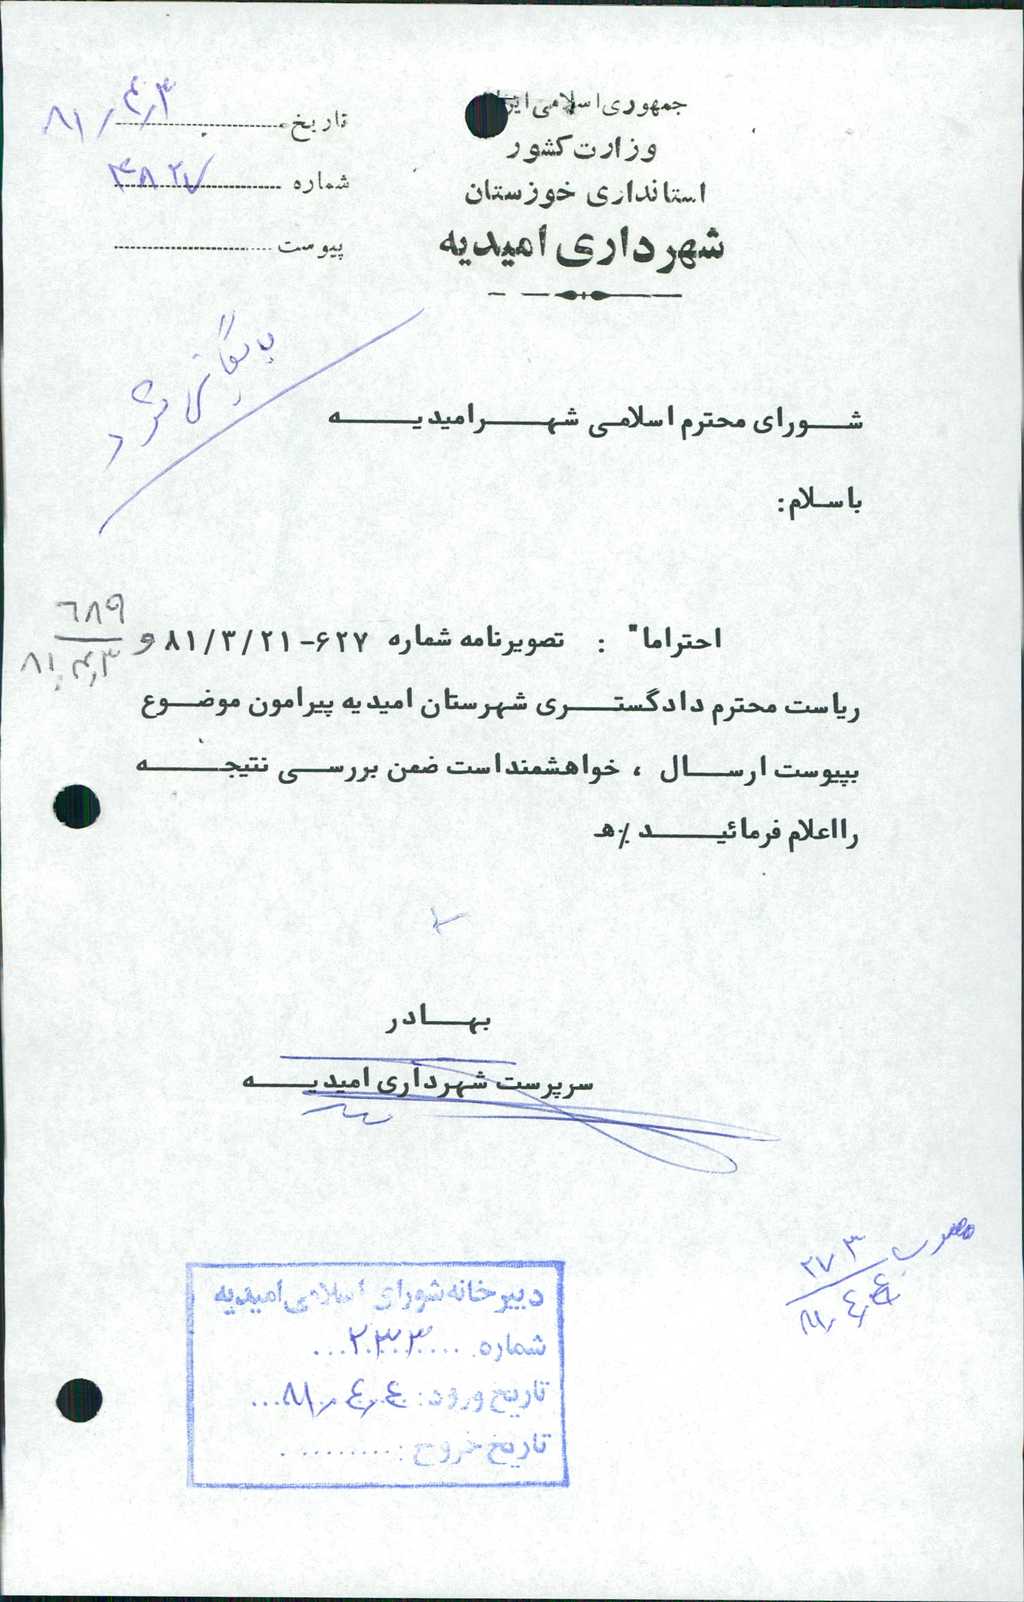 جمهوری اسلامی ایران
وزارت کشور
استانداری خوزستان
شهرداری امیدیه
تاریخ ۸۱/۴/۳
شماره ۴۸۲۷
پیوست
بایگانی شود
شورای محترم اسلامی شهر امیدیه
باسلام:
احتراما" : تصویرنامه شماره ۶۲۷-۸۱/۳/۲۱ و ۶۸۹ ۸۱/۴/۳
ریاست محترم دادگستری شهرستان امیدیه پیرامون موضوع
بپیوست ارسال ، خواهشمنداست ضمن بررسی نتیجه
رااعلام فرمائید ٪ه
بهادر
سرپرست شهرداری امیدیه
۲۷۳
۸۱/۴/۴
دبیرخانه شورای اسلامی امیدیه
شماره ۲۳۳
تاریخ ورود: ۸۱/۴/۴
تاریخ خروج: